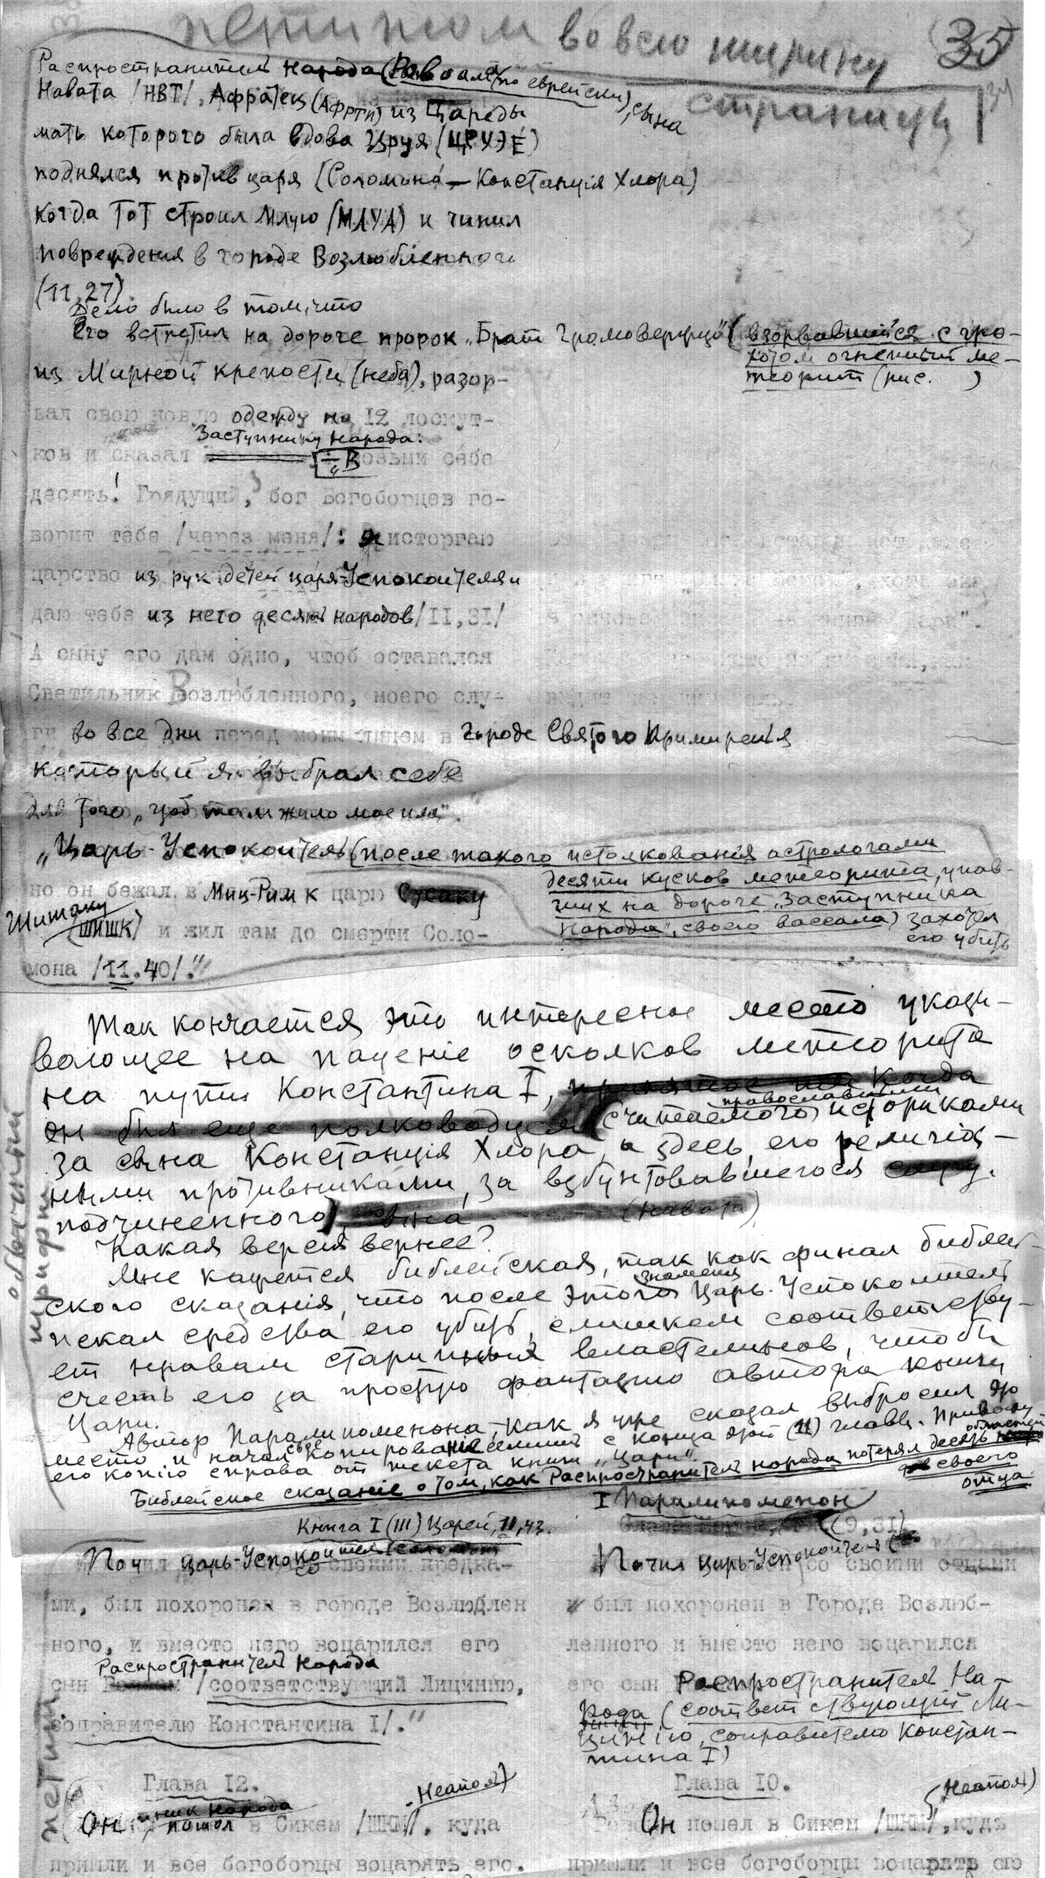 петитом во всю ширину 35
страницы 34
Распространитель Народа (по еврейски), сына
Навата /НВТ/, Афратец (АФРТИ) из Цареды
мать которого была вдова Цруя (ЦРУЭЕ)
поднялся против царя (Соломона — Констанція Хлора)
когда тот строил Млую (МЛУА) и чинил
повреждения в городе Возлюбленного
(11,27).
Дело было в том, что
его встретил на дороге пророк „Брат Громовержца" (взорвавшийся с гро-
хотом огненный ме-
теорит (рис. )
из Мирной крепости (неба), разор-
вал свою новую одежду на 12 лоскут-
ков и сказал Заступнику народа:
— „Возьми себе
десять! Грядущий, бог Богоборцев го-
ворит тебе /через меня/: я исторгаю
царство из рук детей царя-Успокоителя и
даю тебе из него десять народов /11,31/
А сыну его дам одно, чтоб оставался
Светильник Возлюбленного, моего слу-
ги во все дни перед моим лицем в городе Святого Примиренья
который я выбрал себе
для того, чтоб там жило мое имя".
„Царь-Успокоитель (после такого истолкования астрологами
десяти кусков метеорита, упав-
ших на дороге „Заступника
народа", своего вассала) захотел
его убить
но он бежал в Миц-Рим к царю
Шишаку (ШИШК) и жил там до смерти Соло-
мона /11.40/."
Так кончается это интересное место указы-
вающее на паденіе осколков метеорита
на пути Константина I,
(считаемого православными историками
за сына Констанція Хлора, а здесь, его религіоз-
ными противниками, за взбунтовавшегося
подчиненного) (Навата)
Какая версія вернее?
Мне кажется библейская, так как финал библей-
ского сказанія, что после этого знаменія Царь-Успокоитель
искал средства его убить, слишком соответству-
ет нравам старинных властелинов, чтобы
счесть его за простую фантазію автора книги
Цари.
Автор Паралипоменона, как я уже сказал выбросил это
место и начал свое копированіе лишь с конца этой (11) главы. Привожу
его копію справа от текста книги „Цари".
Библейское сказаніе о том, как Распространитель народа потерял десять областей
своего
отца
обычным
шрифтом
Книга I (III) Царей, 11,43.
I Паралипоменон
(9,31)
Почил царь-Успокоитель со своими предка-
ми, был похоронен в городе Возлюблен
ного, и вместо него воцарился его
сын Распространитель Народа /соответствующий Лицинію,
соправителю Константина I/."
Почил царь-Успокоитель со своими отцами
и был похоронен в Городе Возлюб-
ленного и вместо него воцарился
его сын Распространитель На-
рода (соответствующий Ли-
цинію, соправителю Констан-
тина I)
петит
Глава 12.
(Неаполь)
Он пошел в Сикем /ШКМ/, куда
пришли и все богоборцы воцарять его.
Глава 10.
(Неаполь)
Он пошел в Сикем /ШКМ/, куда
пришли и все богоборцы воцарять его